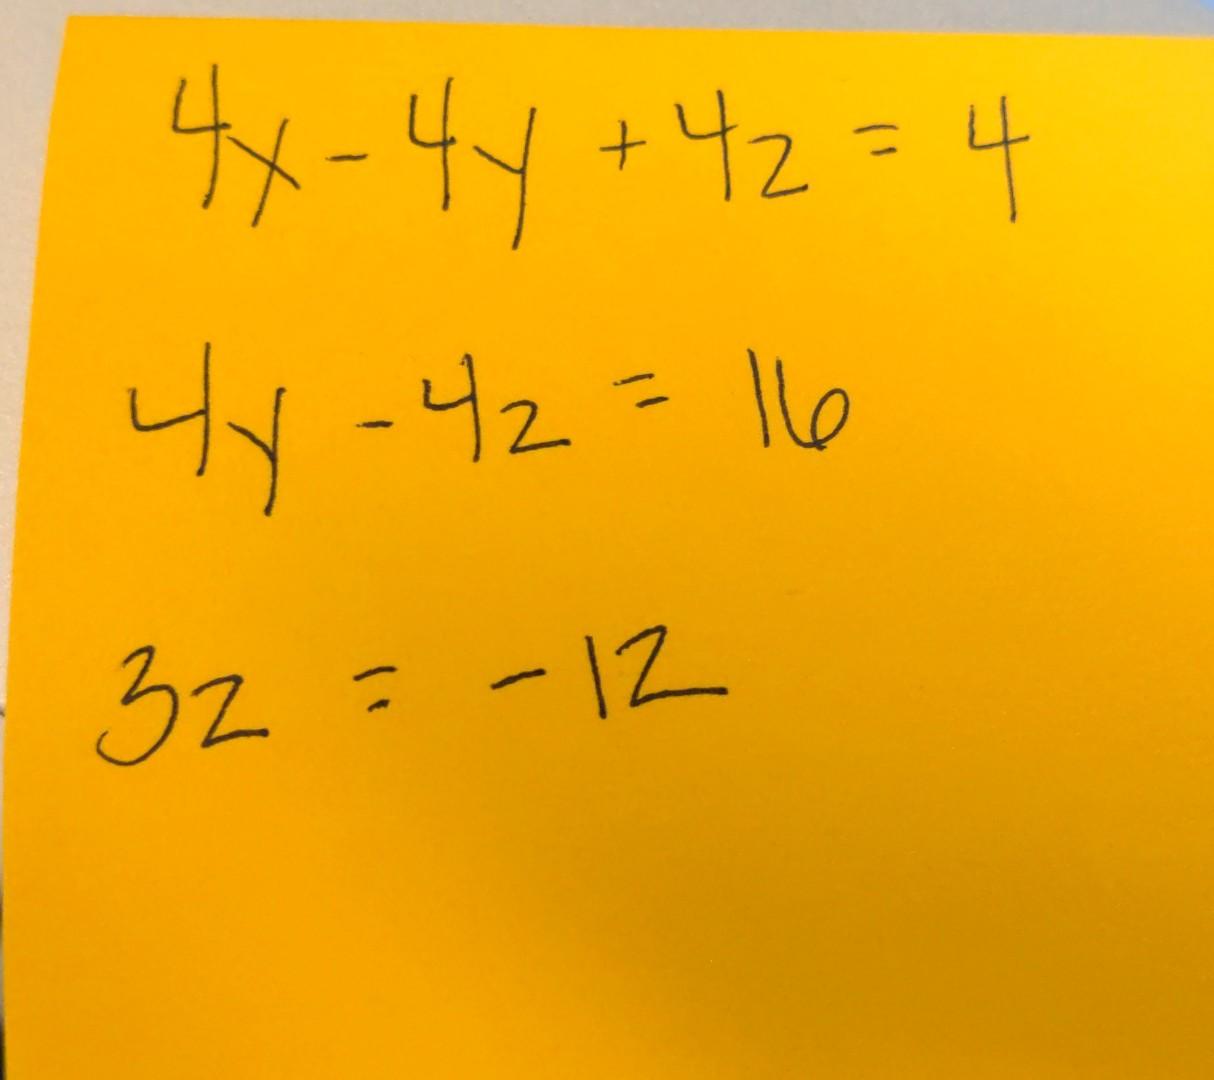 4x - 4y + 4z = 4
4y - 4z = 16
3z = -12